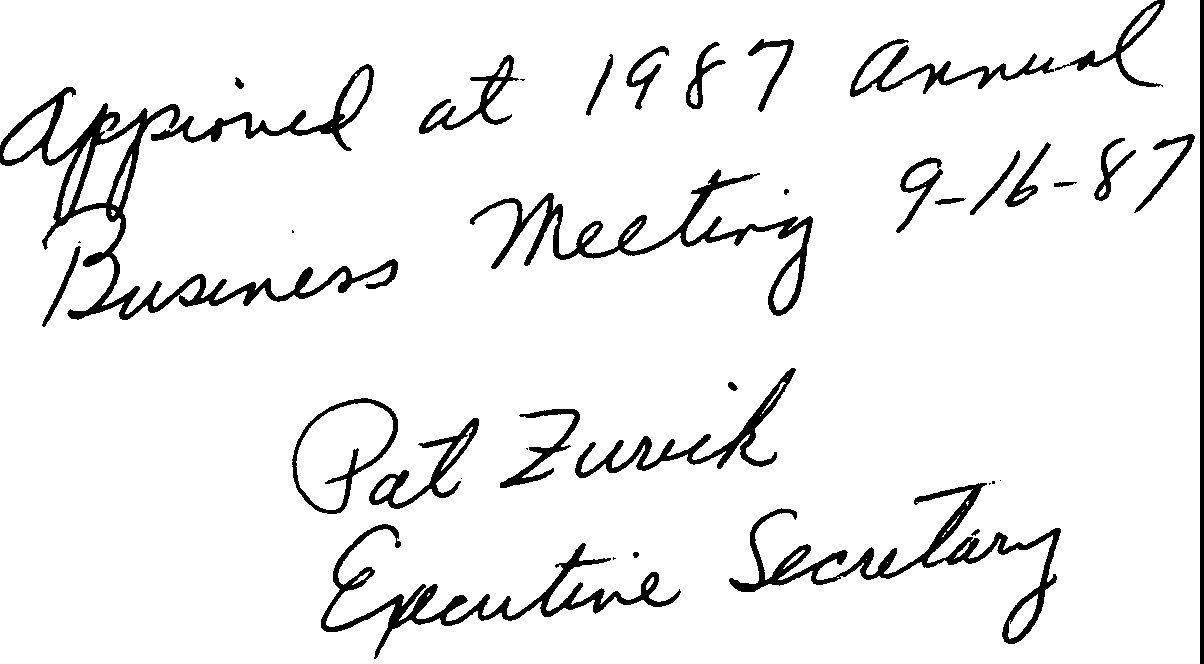 Approved at 1987 Annual
Business Meeting 9-16-87
Pat Zurick
Executive Secretary